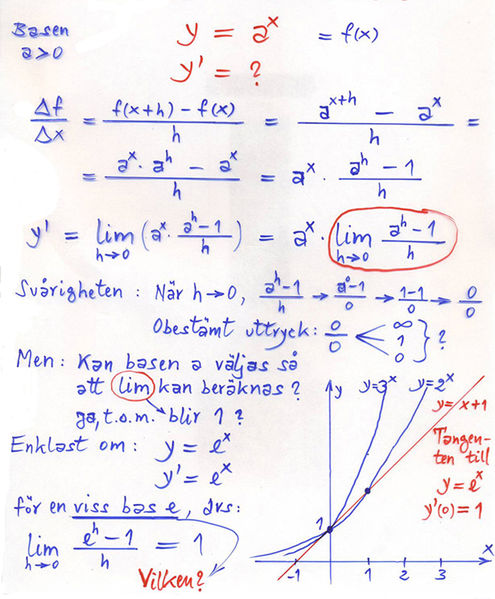 Basen a>0
y = a^x = f(x)
y' = ?
Δf/Δx = (f(x+h) - f(x))/h = (a^(x+h) - a^x)/h =
= (a^x · a^h - a^x)/h = a^x · (a^h - 1)/h
y' = lim h→0 (a^x · (a^h - 1)/h) = a^x · lim h→0 (a^h - 1)/h
Svårigheten : När h→0, (a^h - 1)/h → (a^0 - 1)/0 → (1-1)/0 → 0/0
Obestämt uttryck: 0/0 < ∞ 1 0 } ?
Men : Kan basen a väljas så
att lim kan beräknas ?
Ja, t.o.m. blir 1 ?
Enklast om : y = e^x
y' = e^x
för en viss bas e, dvs:
lim h→0 (e^h - 1)/h = 1
Vilken?
y y=3^x y=2^x
y = x+1
Tangen-
ten till
y = e^x
y'(0) = 1
1
x
-1 1 2 3